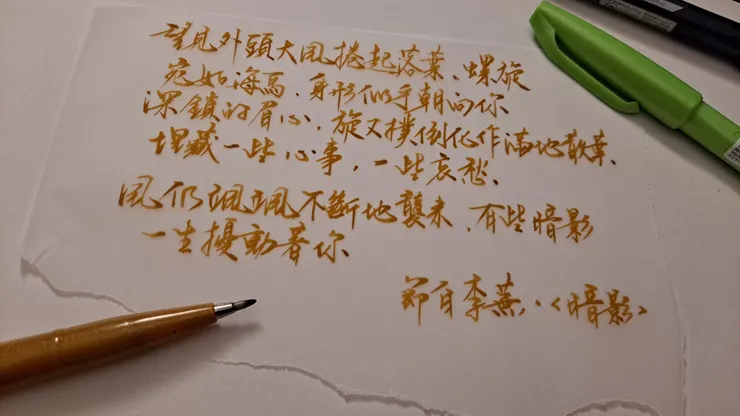 望見外頭大風捲起落葉、螺旋
宛如海馬,身形似乎朝向你
深鎖的眉心,旋又撲倒化作滿地散葉、
埋藏一些心事,一些哀愁、
風仍颯颯不斷地襲來,有些暗影
一生擾動著你、
節自李燕·<暗影>